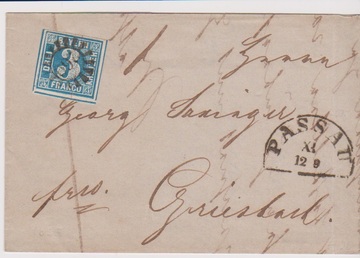 3
FRANCO
Herrn
Georg
PASSAU
XI
12 9
frco.
Griesbach